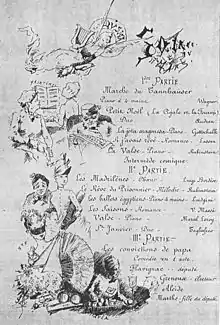 1ère PARTIE
Marche du Tannhauser
Piano à 4 mains - Wagner
Petit Noël (La Cigale et la Fourmi)
Duo - Audran
La jota aragonesa - Piano - Gottschalk
J'avais rêvé - Romance -
La Valse - Piano - Rubinstein
Intermède comique.
IIe PARTIE
Les Madeleines - Chant - Luigi Bordèse
Le Rêve du Prisonnier - Mélodie - Rubinstein
Les ballets égyptiens - Piano 4 mains - Luigini
Les Saisons - Romance - V. Massé
Valse - Piano -
St Janvier - Duo -
IIIe PARTIE
Les convictions de papa
Comédie en 1 acte.
Plavignac - député
électeur
Marthe - fille du député